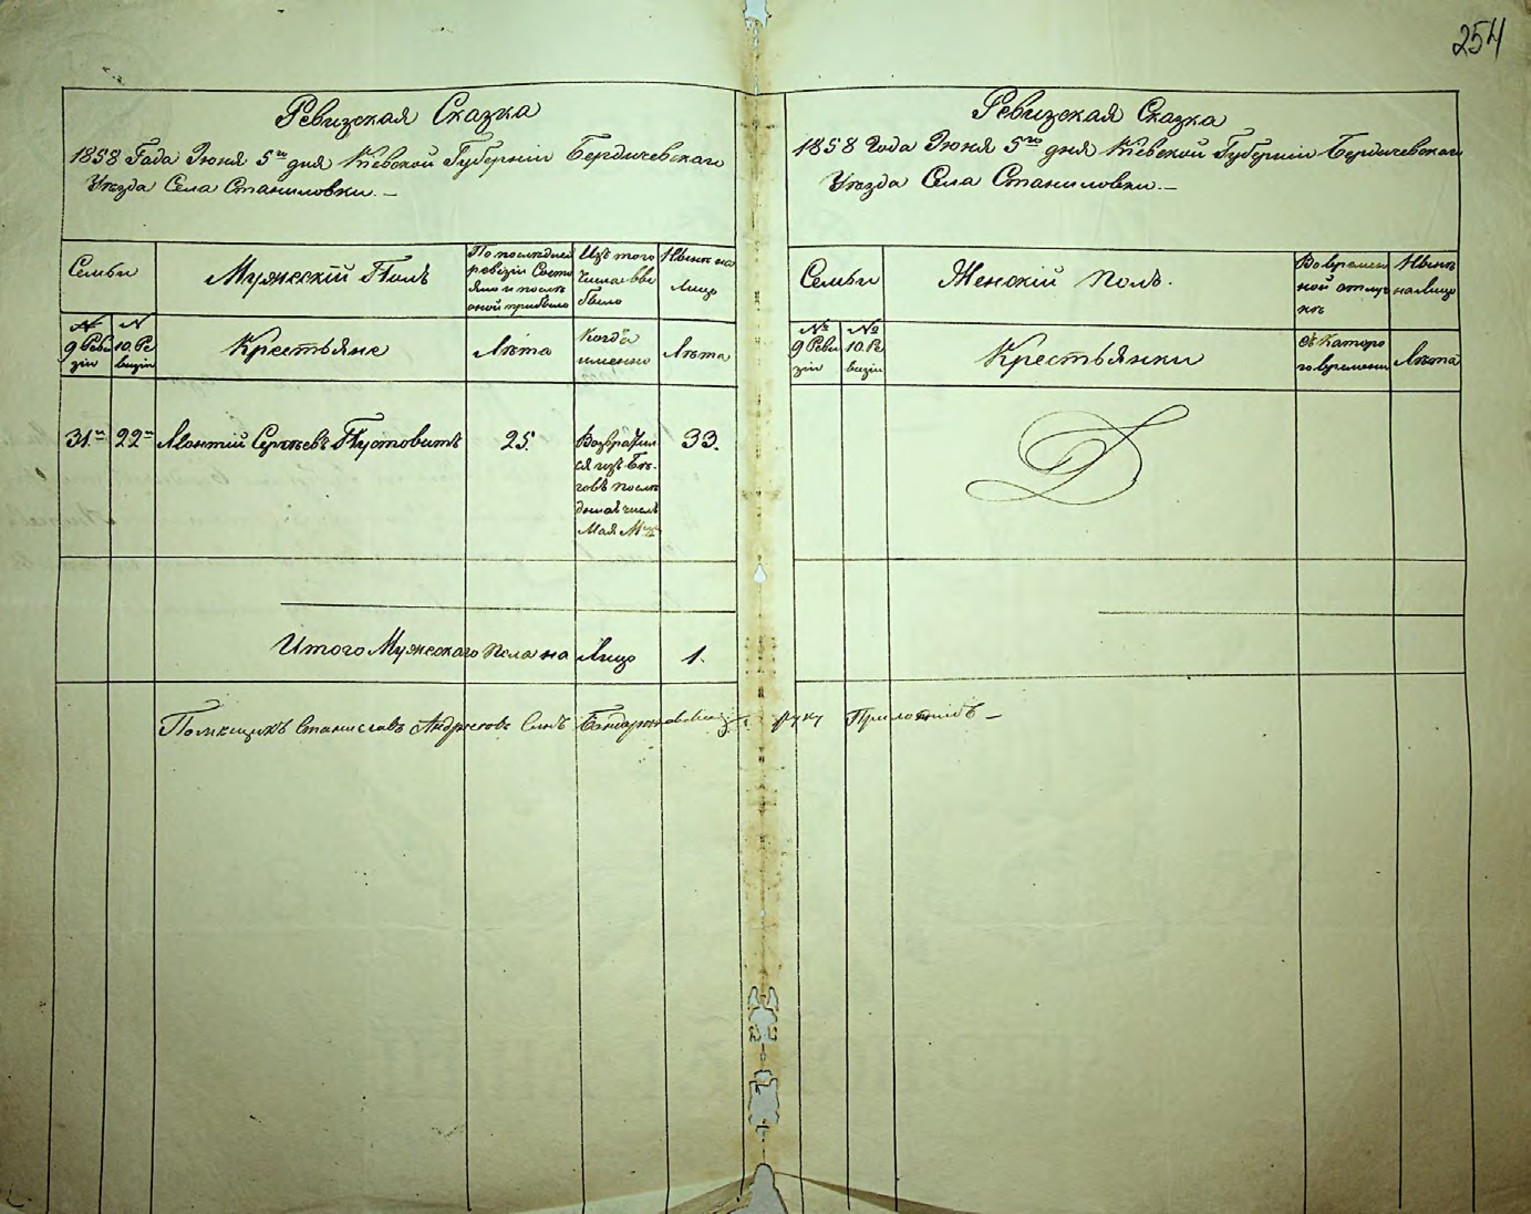 254
Ревизская Сказка
1858 Года Июня 5го дня Кіевской Губерніи Бердичевскаго
Уѣзда Села Станиловки. —
Семьи
Мужескій Полъ
По послѣдней
ревизіи Состо
яло и послѣ
оной прибыло
Изъ того
числа выбы
было
Нынѣ на
Лицо
№
9 Реви
зіи
№
10. Ре
визіи
Крестьяне
Лѣта
Когда
именно
Лѣта
31.й
22й
Леонтій Сергѣевъ Пустовитъ
25.
Возвратил
ся изъ Бѣ
говъ послѣ
Мая М-ца
33.
Итого Мужескаго пола на Лицо
1.
Помѣщикъ Станиславъ Андреевъ Сынъ руку Приложилъ —
Ревизская Сказка
1858 Года Июня 5го дня Кіевской Губерніи Бердичевскаго
Уѣзда Села Станиловки. —
Семьи
Женскій полъ.
Во времен
ной отлуч
кѣ
Нынѣ
на Лицо
№
9 Реви
зіи
№
10. Ре
визіи
Крестьянки
съ каторо
го времени
Лѣта